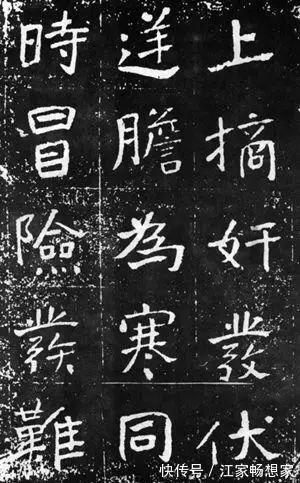 上摘奸發伏
逆膽為寒同
時冒險發難
快传号／江家畅想家